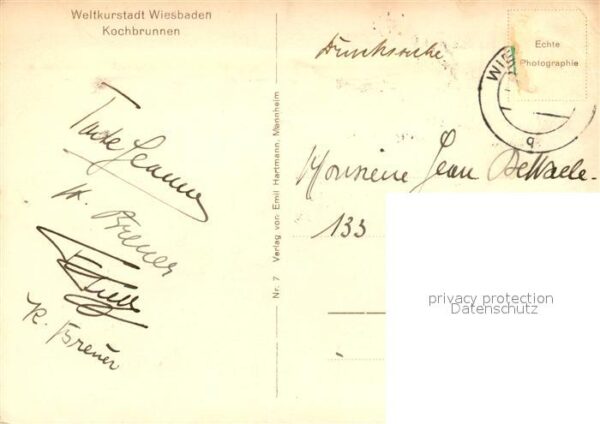 Weltkurstadt Wiesbaden
Kochbrunnen
H. Breuer
K. Breuer
Nr. 7 Verlag von Emil Hartmann, Mannheim
Drucksache
Echte
Photographie
WIES
g
Monsieur Jean DeWaele
133
privacy protection
Datenschutz